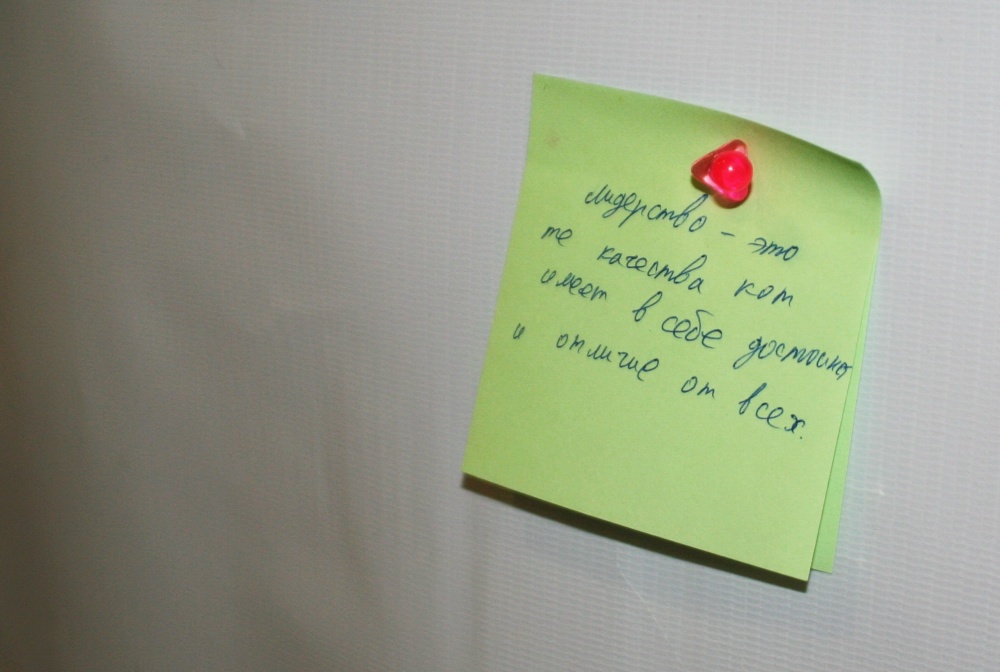 лидерство – это
те качества кот
имеет в себе достоинст
и отличие от всех.